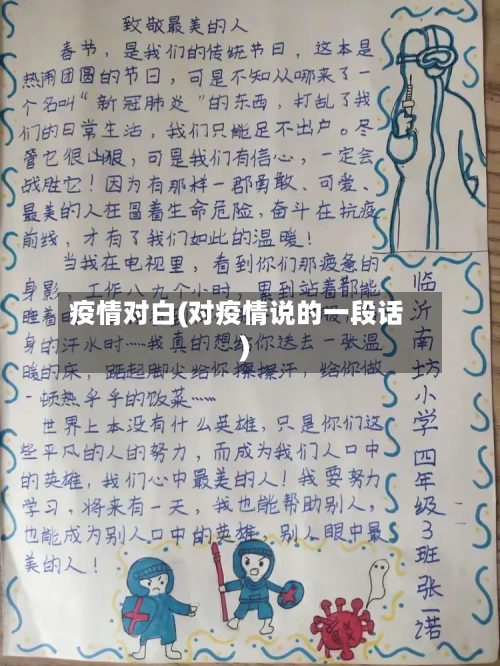 致敬最美的人
春节，是我们的传统节日，这本是
热闹团圆的节日，可是不知从哪来了一
个名叫“新冠肺炎”的东西，打乱了我
们的日常生活，我们只能足不出户。尽
管它很凶狠，可是我们有信心，一定会
战胜它！因为有那样一群勇敢、可爱、
最美的人在冒着生命危险，奋斗在抗疫
前线，才有了我们如此的温暖！
当我在电视里，看到你们那疲惫的
身影，工作八九个小时，累到站着都能
睡着
疫情对白(对疫情说的一段话
)
身的汗水时……我真的想给你送去一张温
暖的床，踮起脚尖给你擦擦汗，给你做
一顿热乎乎的饭菜……
世界上本没有什么英雄，只是你们这
些平凡的人的努力，而成为我们人口中
的英雄，我们心中最美的人！我要努力
学习，将来有一天，我也能帮助别人，
也能成为别人口中的英雄，别人眼中最
美的人！
临沂南坊小学四年级3班张一诺